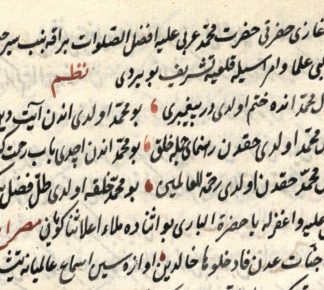 غازى حضرتى حضرت محمد عربى عليه افضل الصلوات براقه بنب سير
علما وامر سيله قلوبنه تشريف بويردى نظم
محمد انده ختم اولدى در پيغمبرى بو محمد اولدى اندن آيت دين
محمد اولدى حقدن رهنماى خلق بو محمد اندن اچدى باب رحمت
محمد حقدن اولدى رحمة للعالمين بو محمد خلقه اولدى ظل فضل
عليه واغفر له يا حضرة البارى بو اثناده ملاء اعلا ثنا كويانى مصر
جنات عدن فادخلوها خالدين اوازه سين اسماع عالميانه